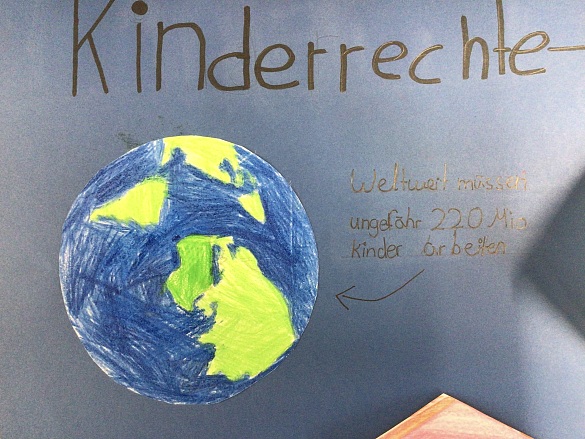 Kinderrechte-
Weltweit müssen
ungefähr 220 Mio
kinder arbeiten